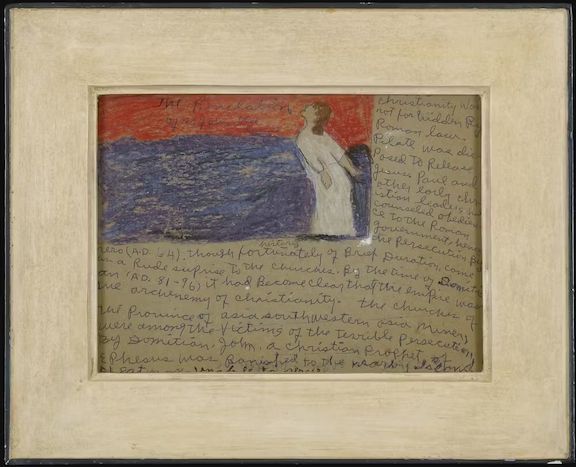 The Revelation
christianity was
not forbidden By
Roman law.
Pilate was dis
Posed to Release
Jesus Paul and
other Early chri
stian leaders
counseled obedien
ce to the Roman
government, hence
the Persecution By
history
nero (A.D. 64), though fortunately of Brief Duration, came
as a Rude suprise to the churches. By the time of Domiti
an (AD. 81-96) it had Become clear that the empire was
the archenemy of christianity. The churches of
the Province of asia southwestern asia minor)
were among the victims of the terrible Persecution
By Domitian, John, a christian Prophet, of
Ephesus was Banished to the nearby Island